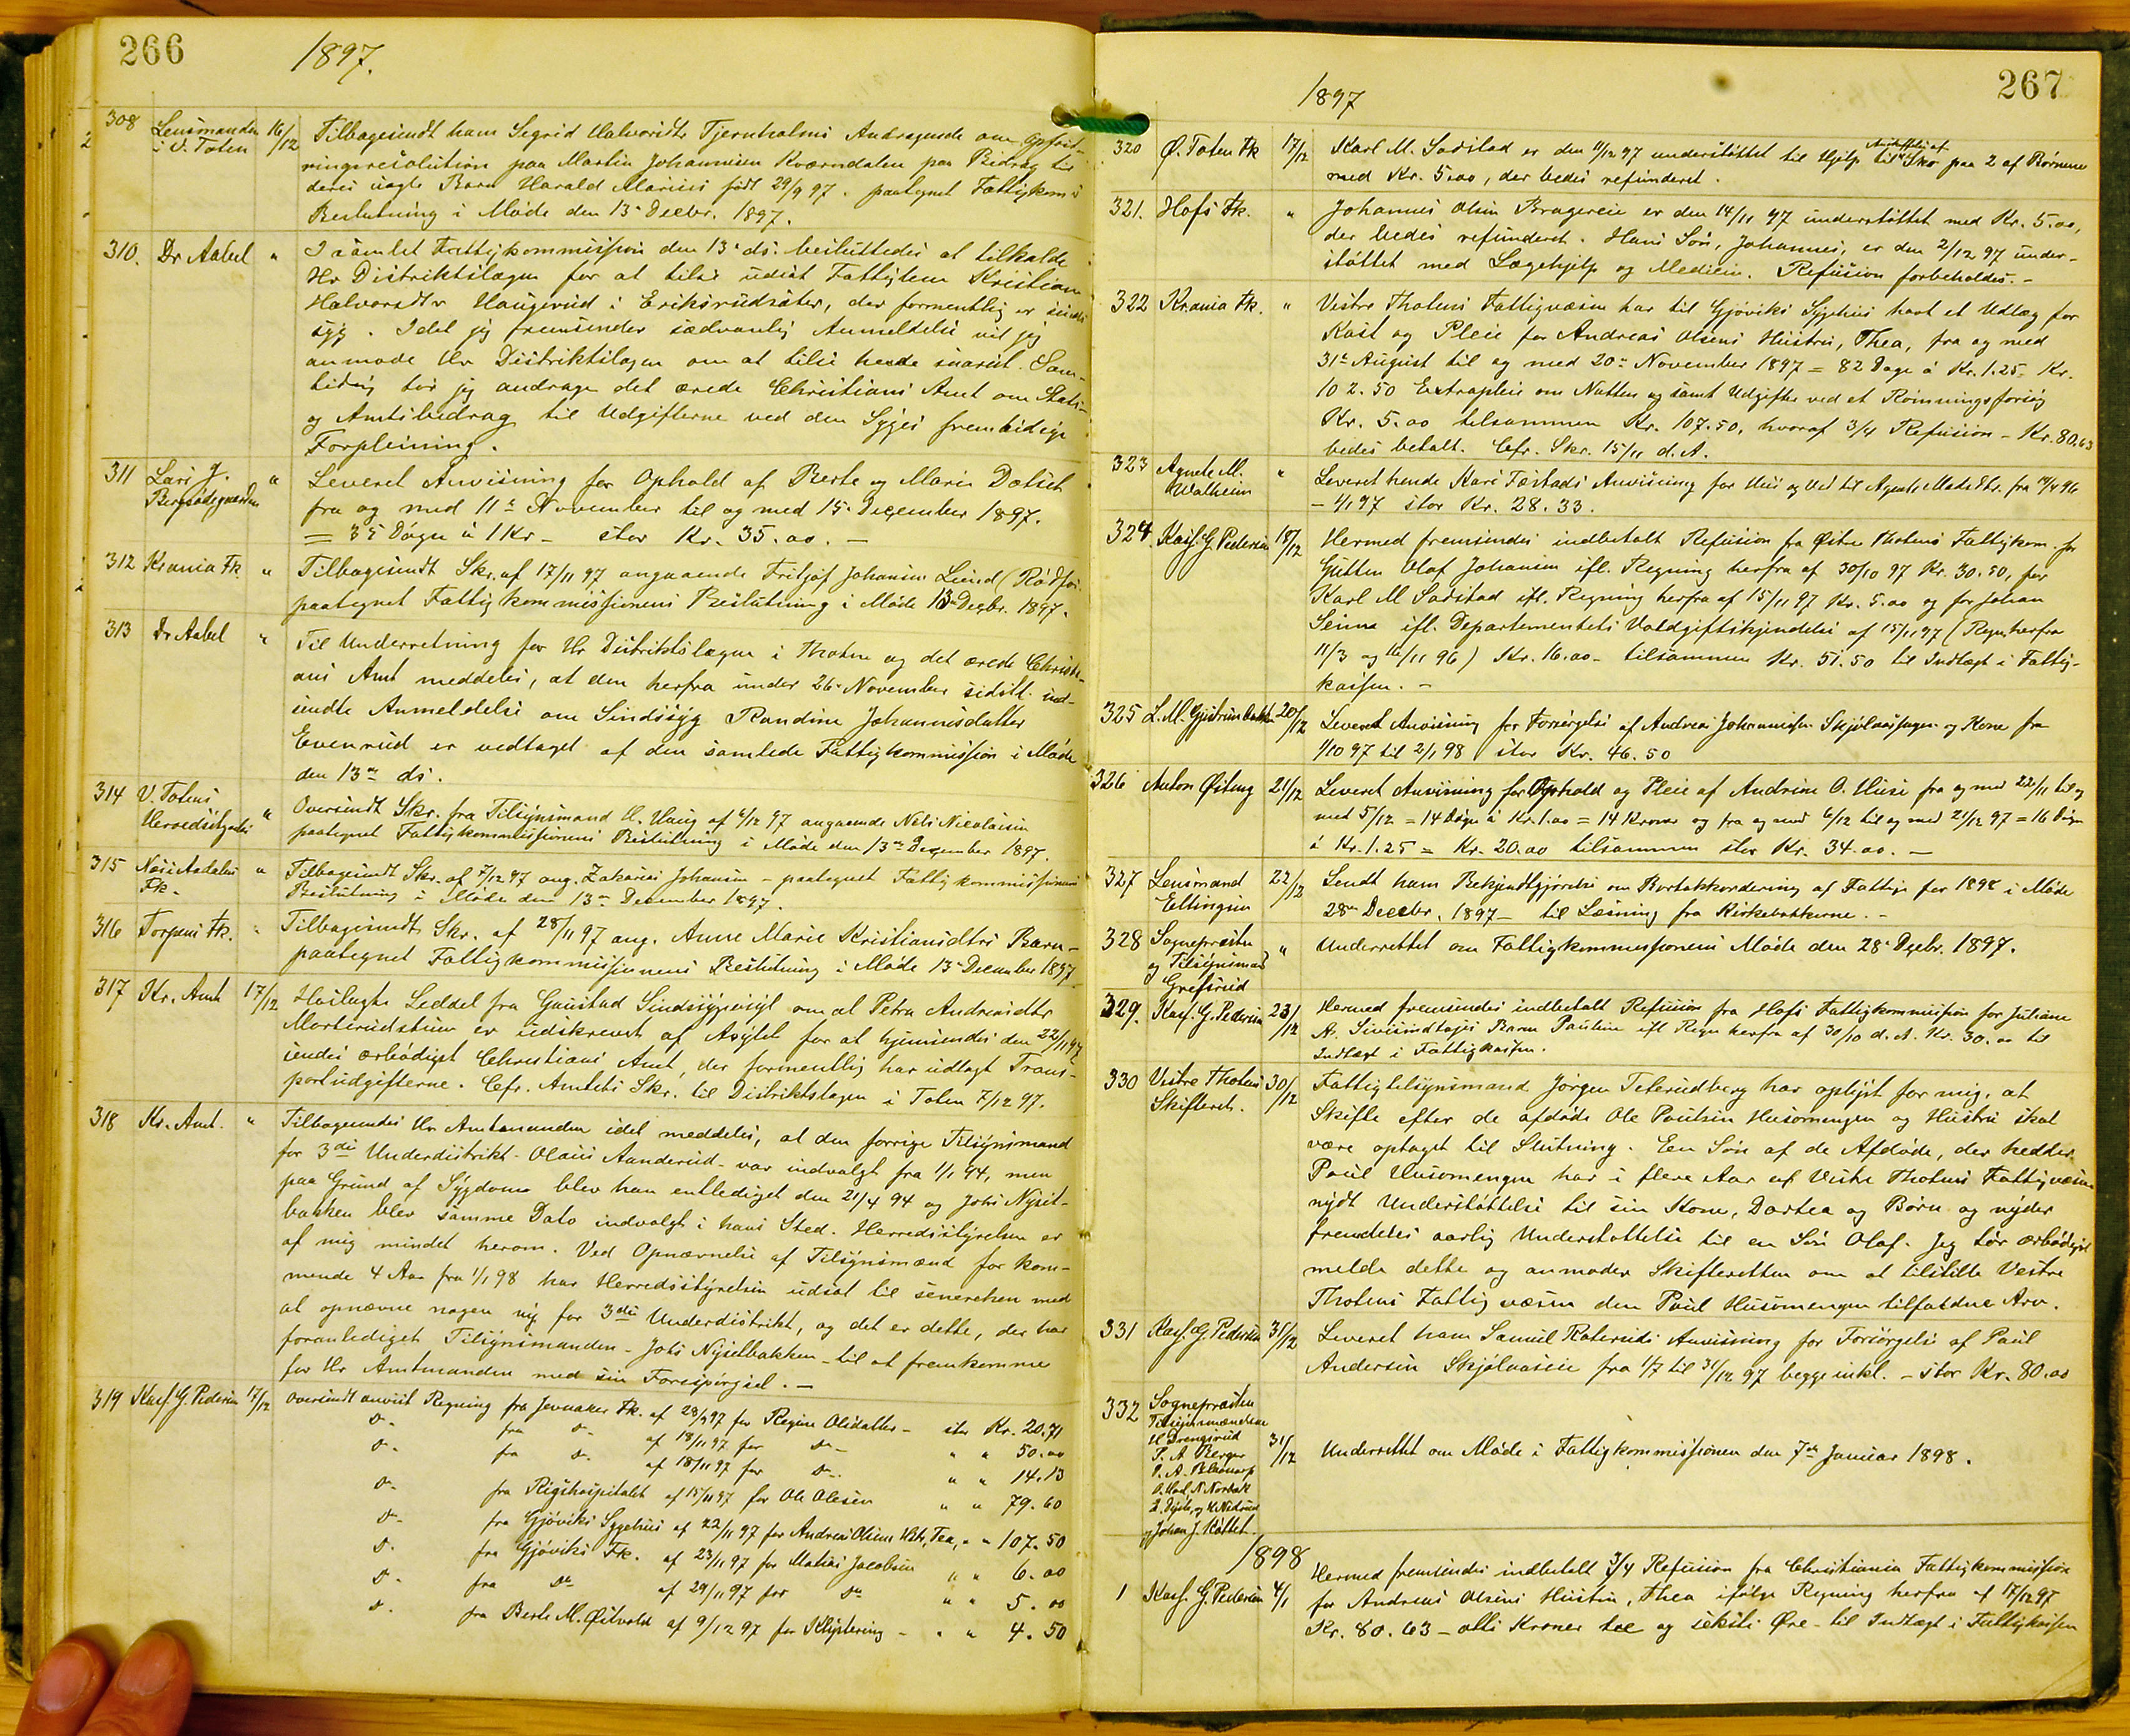 266
1897.
308 Lensmanden 16/12 Tilbagesendt ham Sigrid Halvorsdtr Tjernholms Andragende om Opfost-
i V. Toten ringsresolution paa Martin Johannesen Kværndalen paa Bidrag til
deres uægte Barn Harald Marius født 29/9 97. paategnet Fattigkom.s
Beslutning i Møde den 13 Decbr. 1897.
310. Dr Aabel " I samlet Fattigkommission den 13' ds. besluttedes at tilkalde
Hr Distriktslægen for at tilse udsat Fattiglem Kristian
Halvorsdtr Haugerud i Eriksrudsæter, der formentlig er sinds
syg. Idet jeg fremsender sædvanlig Anmeldelse vil jeg
anmode Hr Distriktslægen om at tilse hende snarest. Sam-
tidig tør jeg andrage det ærede Christians Amt om Stats-
og Amtsbidrag til Udgifterne ved den Syges fremtidige
Forpleining.
311 Lars J. " Leveret Anvisning for Ophold af Berte og Marie Dotset
Bergsodegaarden fra og med 11te November til og med 15 December 1897.
= 35 Døgn à 1 Kr - stor Kr. 35.00. -
312 Krania Fk " Tilbagesendt Skr. af 17/11 97 angaaende Fritjof Johansen Lund (Rødfos
paategnet Fattigkommissionens Beslutning i Møde 13 Decbr. 1897.
313 Dr Aabel " Til Underretning for Hr Distriktslægen i Thoten og det ærede Christi-
ans Amt meddeles, at den herfra under 26 November sidstl. ind-
sendte Anmeldelse om Sindssyg Randine Johannesdatter
Evenrud er vedtaget af den samlede Fattigkommission i Møde
den 13de ds.
314 V. Totens " Oversendt Skr. fra Tilsynsmand H. Haug af 4/12 97 angaaende Nels Nicolaisen
Herredsstyrelse paategnet Fattigkommissionens Beslutning i Møde den 13de December 1897.
315 Næs i Aadalens " Tilbagesendt Skr. af 7/12 97 ang. Zakarias Johansen - paategnet Fattigkommissionens
Fk. Beslutning i Møde den 13de December 1897.
316 Torpens Fk. " Tilbagesendt Skr. af 28/11 97 ang. Anne Marie Kristiansdtrs Barn -
paategnet Fattigkommissionens Beslutning i Møde 13 December 1897
317 Kr. Amt 17/12 Hoslagte Seddel fra Gaustad Sindssygeasyl om at Petra Andreasdtr
Marterudstuen er udskrevet af Asylet for at hjemsendes den 22/11 97
sendes ærbødigst Christians Amt, der formentlig har udlagt Trans-
portudgifterne. Cfr. Amtets Skr. til Distriktslægen i Toten 7/12 97.
318 Kr. Amt. " Tilbagesendes Hr Amtmanden idet meddeles, at den forrige Tilsynsmand
for 3die Underdistrikt - Olaus Aanderud - var indvalgt fra 1/1 94, men
paa Grund af Sygdom blev han entlediget den 21/4 94 og Johs Nysel-
bakken blev samme Dato indvalgt i hans Sted. Herredsstyrelsen er
af mig mindet herom. Ved Opnævnelse af Tilsynsmænd for kom-
mende 4 Aar fra 1/1 98 har Herredsstyrelsen udsat til senerehen med
at opnævne nogen ny for 3die Underdistrikt, og det er dette, der har
foranlediget Tilsynsmanden - Johs Nyselbakken - til at fremkomme
for Hr Amtmanden med sin Forespørgsel. -
319 Kasf. G. Pedersen 17/12 Oversendt anvist Regning fra Jevnaker Fk. af 28/9 97 for Regine Olsdatter - stor Kr. 20.71
do. fra do. af 18/11 97 for do - " " 50.00
do. fra do. af 18/11 97 for do. " " 14.13
do. fra Rigshospitalet af 15/11 97 for Ole Olesen " " 79.60
do. fra Gjøviks Sygehus af 22/11 97 for Andreas Olsens Hstr, Tea, " " 107.50
do. fra Gjøviks Fk. af 23/11 97 for Matias Jacobsen " " 6.00
do. fra do af 29/11 97 for do " " 5.00
do. fra Berte M. Østvold af 9/12 97 for Klystering - " " 4.50
267
1897
320 Ø. Toten Fk 17/12 Karl M. Sadstad er den 11/12 97 understøttet til Hjelp til Anskaffelse af Sko paa 2 af Børnene
med Kr. 5.00, der bedes refunderet.
321. Hofs Fk. " Johannes Olsen Bragereie er den 14/11 97 understøttet med Kr. 5.00,
der bedes refunderet. Hans Søn, Johannes, er den 2/12 97 under-
støttet med Lægehjelp og Medicin. Refusion forbeholdes. -
322 Krania Fk. " Vestre Thotens Fattigvæsen har til Gjøviks Sygehus havt et Udlæg for
Kost og Pleie for Andreas Olsens Hustru, Thea, fra og med
31te August til og med 20de November 1897 = 82 Dage à Kr. 1.25 = Kr.
102.50 Extrapleie om Natten og samt Udgifter ved et Rømningsforsøg
Kr. 5.00 tilsammen Kr. 107.50, hvoraf 3/4 Refusion - Kr. 80.63
bedes betalt. Cfr. Skr. 15/11 d.A.
323 Agnete M. " Leveret hende Kari Færstads Anvisning for Hus og Ved til Agnete Madsdtr. fra 14/4 96
Walheim - 4/1 97 stor Kr. 28.33.
324. Kasf. G. Pedersen 18/12 Hermed fremsendes indbetalt Refusion fra Østre Thotens Fattigkom. for
Gutten Olaf Johansen ifl. Regning herfra af 30/10 97 Kr. 30.50, for
Karl M Sadstad ifl. Regning herfra af 15/11 97 Kr. 5.00 og for Johan
Seima ifl. Departementets Voldgiftskjendelse af 15/11 97 (Regn. herfra
11/3 og 16/11 96) Kr. 16.00 - tilsammen Kr. 51.50 til Indtægt i Fattig-
kassen. -
325 L. M. Gjudrunbakken 20/12 Leveret Anvisning for Forsørgelse af Andreas Johannesen Skjølaashagen og Kone fra
1/10 97 til 2/1 98 stor Kr. 46.50
326 Anton Østeng 21/12 Leveret Anvisning for Ophold og Pleie af Andrine O. Huse fra og med 22/11 til og
med 5/12 = 14 Døgn à Kr. 1.00 = 14 Kroner og fra og med 6/12 til og med 21/12 97 = 16 Døgn
à Kr. 1.25 = Kr. 20.00 tilsammen stor Kr. 34.00. -
327 Lensmand 22/12 Sendt ham Bekjendtgjørelse om Bortakkordering af Fattige for 1898 i Møde
Ellingsen 28de Decebr. 1897 - til Læsning fra Kirkebakkerne. -
328 Sognepresten " Underrettet om Fattigkommissionens Møde den 28' Decbr. 1897.
og Tilsynsmand
Grefsrud
329. Kasf. G. Pedersen 23/12 Hermed fremsendes indbetalt Refusion fra Hofs Fattigkommission for Juliane
A. Sivesindtajes Barn Pauline ifl Regn herfra af 30/10 d.A. Kr. 30.00 til
Indtægt i Fattigkassen.
330 Vestre Thotens 30/12 Fattigtilsynsmand Jørgen Teterudberg har oplyst for mig, at
Skifteret. Skifte efter de afdøde Ole Poulsen Husomengen og Hustru skal
være optaget til Slutning. En Søn af de Afdøde, der hedder
Paul Husomengen har i flere Aar af Vestre Thotens Fattigvæsen
nydt Understøttelse til sin Kone, Dortea og Børn og nyder
fremdeles aarlig Understøttelse til en Søn Olaf. Jeg tør ærbødigst
melde dette og anmoder Skifteretten om at tilstille Vestre
Thotens Fattigvæsen den Paul Husomengen tilfaldne Arv.
331 Kasf. G Pedersen 31/12 Leveret ham Samuel Raterruds Anvisning for Forsørgelse af Paul
Andersen Skjølaaseie fra 1/7 til 31/12 97 begge inkl. - stor Kr. 80.00
332 Sognepresten
Tilsynsmændene
H Drengsrud
P. A. Berger 31/12 Underrettet om Møde i Fattigkommissionen den 7de Januar 1898.
og Johan J. Kattet.
1898
1 Kasf. G. Pedersen 4/1 Hermed fremsendes indbetalt 3/4 Refusion fra Christiania Fattigkommission
for Andreas Olsens Hustru, Thea ifølge Regning herfra af 17/12 97
Kr. 80.63 - otti Kroner tre og seksti Øre - til Indtægt i Fattigkassen